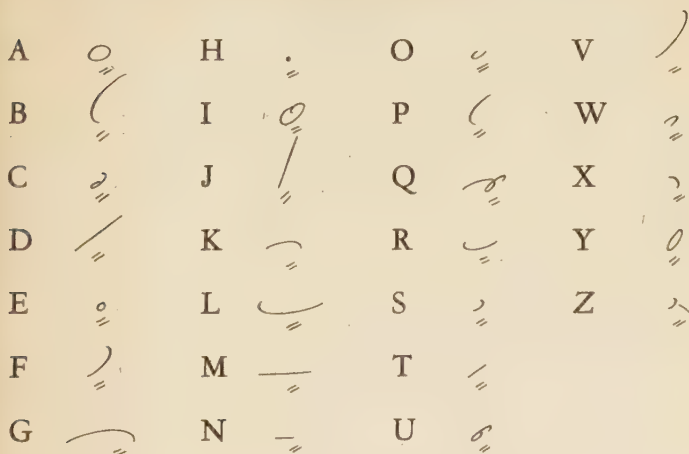 A H O V
B I P W
C J Q X
D K R Y
E L S Z
F M T
G N U